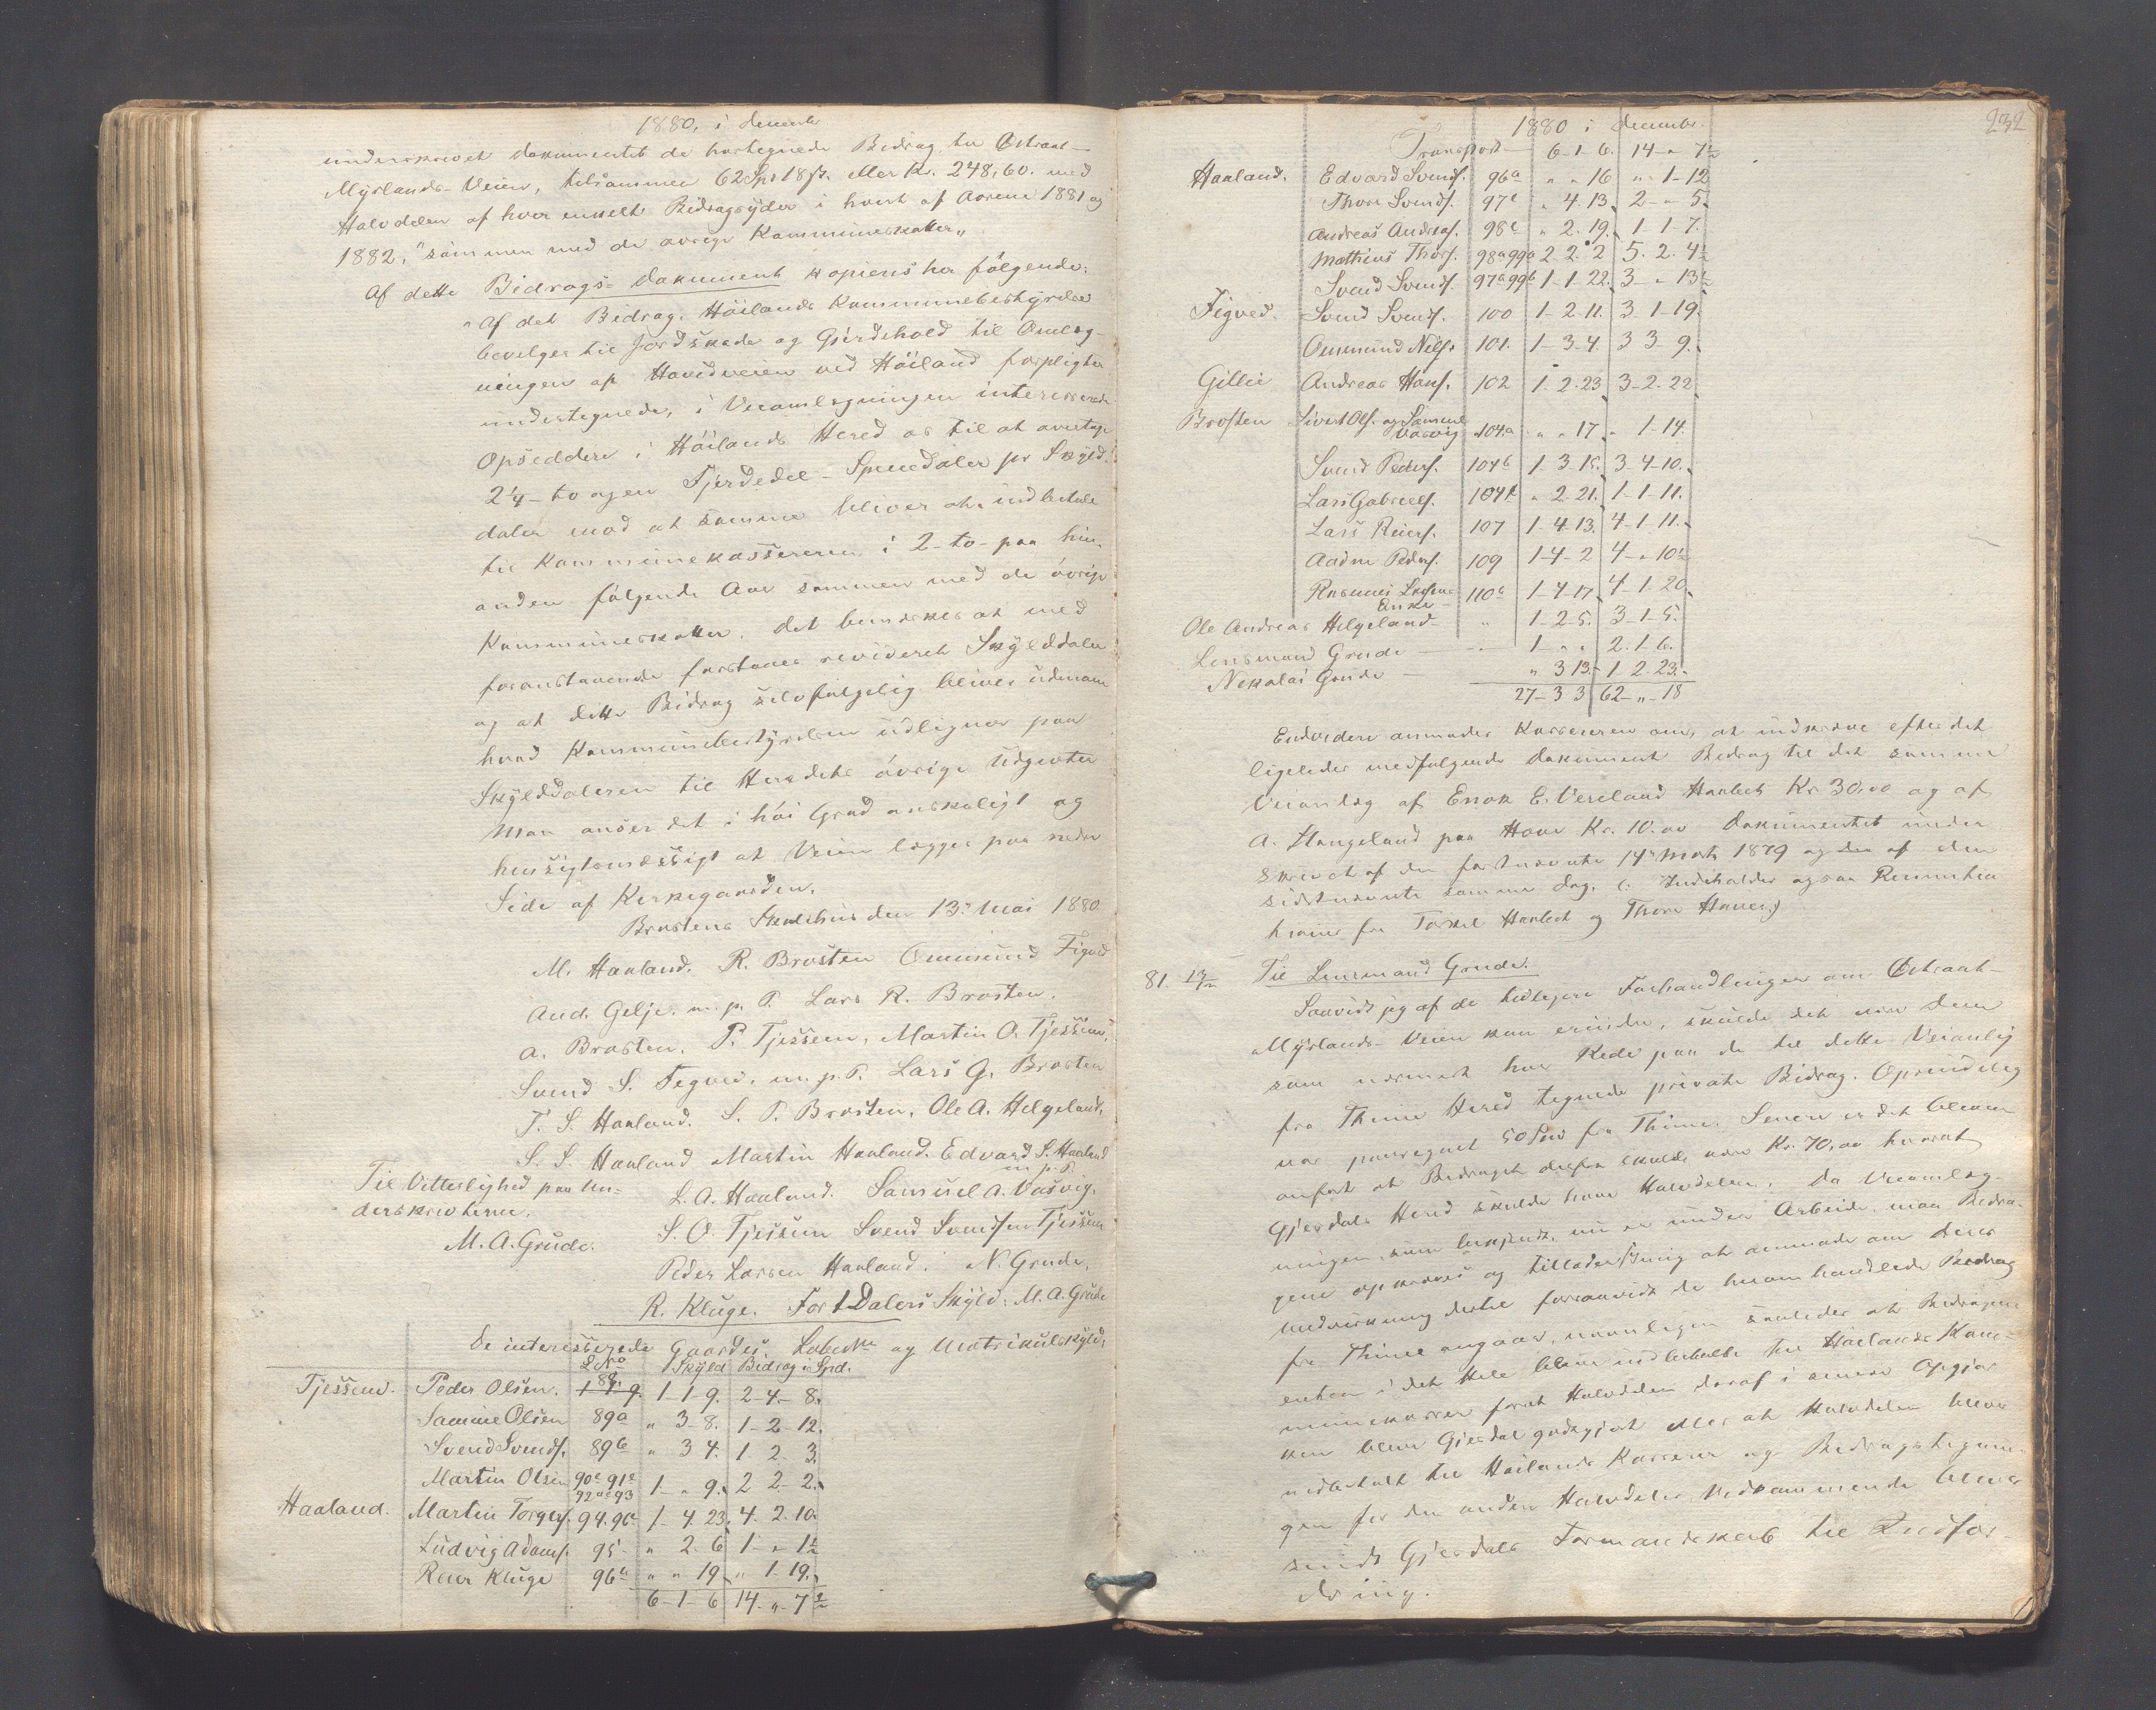 1880, i december
underskrevet Dokumentet de hostegnede Bidrag til Østraat-
Myrlands-Veien, tilsammen 62 Spd 18 ß. eller Kr. 248,60. med
Halvdelen af hver enkelt Bidragsyder i hvert af Aarene 1881 og
1882, "sammen med de øvrige Kommuneskatter„
Af dette Bidrags-Dokument kopieres her følgende:
"Af det Bidrag, Höilands Kommunebestyrelse
bevilger til Jordskade og Gjerdehold til Omlæg-
ningen af Hovedveien ved Höiland forpligter
undertegnede, i Veiomlægningen interesserede
Opsiddere i Höilands Hered os til at overtage
2¼ - to og en Fjerdedel - Speciedaler pr Skyld-
daler mod at samme bliver at indbetale
til Kommunekassereren i 2 - to - paa hin-
anden følgende Aar sammen med de øvrige
Kommuneskatter. Det bemærkes at med
foranstaaende forstaaes revideret Skylddaler
og at dette Bidrag selvfølgelig bliver udenom
hvad Kommunebestyrelsen udligner paa
Skylddaleren til Heredets øvrige Udgivter
Man anser det i höi Grad ønskeligt og
hensigtsmæssigt at Veien lægges paa nedre
Side af Kirkegaarden.
Brostens Skolehus den 13de Mai 1880
M. Haaland. R. Brosten Ommund Figved
And. Gilje. m. p. P. Lars R. Brosten.
A. Brosten. P. Tjessem, Martin O. Tjessem,
Svend S. Fegved. m. p. P. Lars G. Brosten
T. S. Haaland. S. P. Brosten, Ole A. Helgeland,
S. S. Haaland Martin Haaland. Edvard S. Haaland
m. p. P.
Til Vitterlighed paa Un- L. A. Haaland. Samuel A. Vasvig.
derskrivterne. S. O. Tjessem Svend Svendsen Tjessem
M. A. Grude. Peder Larsen Haaland. N. Grude,
R. Kluge. For 1 Dalers Skyld: M. A. Grude
De interesserede Gaardes, Løbe No og Matrikulskyld:
L No Skyld Bidrag i Spd.
Tjessem. Peder Olsen. 88. 1 1 9. 2-4-8.
Samme Olsen 89a „ 3-8. 1-2-12.
Svend Svends. 89b „ 3 4. 1. 2. 3.
Martin Olsen 90a 91a 92a 93 1-„ 9. 2 2-2.
Haaland. Martin Torgers. 94. 96a 1-4 23. 4. 2. 10.
Ludvig Adams. 95 „ 2. 6 1-„ 1½
Reier Kluge 96a „ „ 19 „ 1. 19.
6-1-6 14-„-7½
232
1880 i december.
Transport 6-1-6. 14-„ 7½
Haaland. Edvard Svends. 96a „ „ 16 „ 1-12
Thore Svends. 97c „ 4. 13. 2-„ 5.
Andreas Andreas. 98c „ 2. 19. 1-1-7.
Mathias Thors. 98a 99a 2. 2. 2 5. 2. 4½
Svend Svends. 97a 99b 1-1 22. 3-„ 13½
Figved. Svend Svends. 100 1-2-11. 3 1-19.
Ommund Nils. 101. 1-3-4. 3 3 9.
Gillie Andreas Hans. 102 1. 2. 23 3-2. 22
Brosten Sivert Ols. og Samuel
Vasvig 104a „ „ 17 „ 1-14.
Svend Peders. 104b 1-3-15. 3-4-10.
Lars Gabriels. 104c „ 2-21. 1-1-11.
Lars Reiers. 107 1-4 13. 4-1 11.
Aadne Peders. 109 1-4-2 4-„ 10½
Rasmus Larsens
Enke 110a 1-4-17. 4-1-20.
Ole Andreas Helgeland „ 1-2-5. 3-1-5.
Lensmand Grude — 1 „ „ 2. 1 6.
Nikolai Grude — „ 3 13. 1 2. 23.
27-3 3 62-„-18
Endvidere anmodes Kassereren om, at indkræve efter det
ligeledes medfølgende Dokument Bidrag til det samme
Veianlæg af Enok E. Vereland Kr 30,00 og af
A. Stangeland paa Hove Kr. 10.00 Dokumentet under
skrevet af den førstnævnte 14de Marts 1879 og den af den
sidstnævnte samme dag. (: Indeholder ogsaa
fra Torkel og Thore :)
81. Til Lensmand Grude.
Saavidt jeg af de tidligere Forhandlinger om Østraat-
Myrlands-Veien kan erindre, skulde det være Dem
som nærmest har Rede paa de til dette Veianlæg
fra Thime Hered tegnede private Bidrag. Oprindelig
var paaregnet 50 Spd fra Thime. Senere er det bleven
anført at Bidraget derfra skulde være Kr. 70,00 hvorat
Gjesdals Hered skulde have Halvdelen. Da Veiomlæg-
ningen, som bekjendt, nu er under Arbeide, maa Bidra-
gene opkræves og tillader jeg mig at anmode om Deres
Medvirkning dertil forsaavidt de heromhandlede Bidrag
fra Thime angaar, navnligen saaledes at Bidragene
enten i det Hele blive indbetalte til Höilands Kom-
munekasse forat Halvdelen deraf i senere Opgjør
kan blive Gjesdal godtgjort eller at Halvdelen bliver
indbetalt til Höilands Kasserer og Bidragstegnin-
gen for den anden Halvdeles Vedkommende bliver
sendt Gjesdals Formandskab til Indfor-
dring.